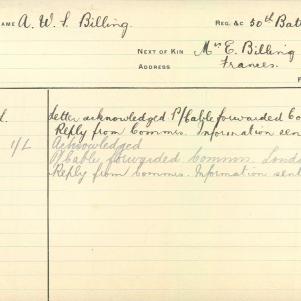 NAME A. W. S. Billing. REG. &C 50th Batt
NEXT OF KIN Mrs E. Billing
ADDRESS Frances.
Letter acknowledged P/Cable forwarded Co
Reply from Commrs. Information sen
1/L Acknowledged
P/Cable forwarded Commrs. Londo
Reply from Commrs. Information sent